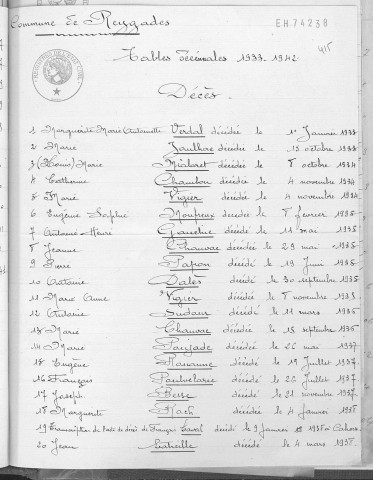 Commune de Reygades
EH 74238
415
Tables décennales 1933-1942
Décès.
1 Marguerite Marie Antoinette Verdal décédée le 1er Janvier 1933
2 Marie décédée le 15 octobre 1933
3 Marie Mialaret décédée le 8 octobre 1934
4 Catherine Chambon décédée le 4 novembre 1934
5 Marie Vigier décédée le 4 novembre 1934
6 Eugène décédé le 8 février 1935
7 Antoine Henri décédé le 11 mai 1935
8 Jeanne décédée le 29 mai 1935
9 Pierre Papon décédé le 19 Juin 1935
10 Antoine décédé le 30 septembre 1935
11 Marie Anne Vigier décédée le 8 novembre 1935
12 décédé le 11 mars 1936
13 Marie décédée le 15 septembre 1936
14 Marie Poujade décédée le 26 mai 1937
15 Eugène décédé le 19 Juillet 1937
16 François décédé le 26 Juillet 1937
17 Joseph décédé le 21 novembre 1937
18 Marguerite Roch décédée le 4 Janvier 1938
19 Transcription de l'acte de décès de François Laval décédé le 9 Janvier 1938 à Cahors
20 Jean décédé le 4 mars 1938.